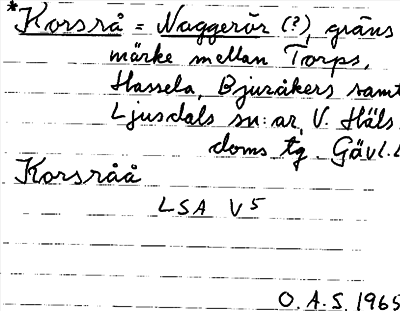 *Korsrå = Naggerör (?), gräns
märke mellan Torps,
Hassela, Bjuråkers samt
Ljusdals sn:ar, V. Häls
doms tg. Gävl. l
Korsråå
LSA V5
O.A.S. 1965